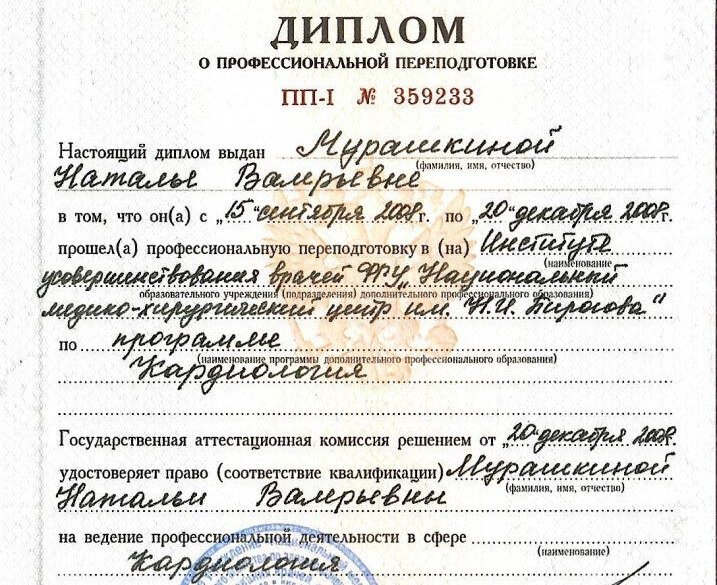 ДИПЛОМ
О ПРОФЕССИОНАЛЬНОЙ ПЕРЕПОДГОТОВКЕ
ПП-I № 359233
Настоящий диплом выдан Мурашкиной
(фамилия, имя, отчество)
Наталье Валерьевне
в том, что он(а) с „15“ сентября 2008г. по „20“ декабря 2008г.
прошел(а) профессиональную переподготовку в (на) Институте
(наименование
усовершенствования врачей ФГУ „Национальный
образовательного учреждения (подразделения) дополнительного профессионального образования)
медико-хирургический центр им. Н.И. Пирогова“
по программе
(наименование программы дополнительного профессионального образования)
Кардиология
Государственная аттестационная комиссия решением от „20“ декабря 2008г.
удостоверяет право (соответствие квалификации) Мурашкиной
(фамилия, имя, отчество)
Натальи Валерьевны
на ведение профессиональной деятельности в сфере
(наименование)
Кардиология